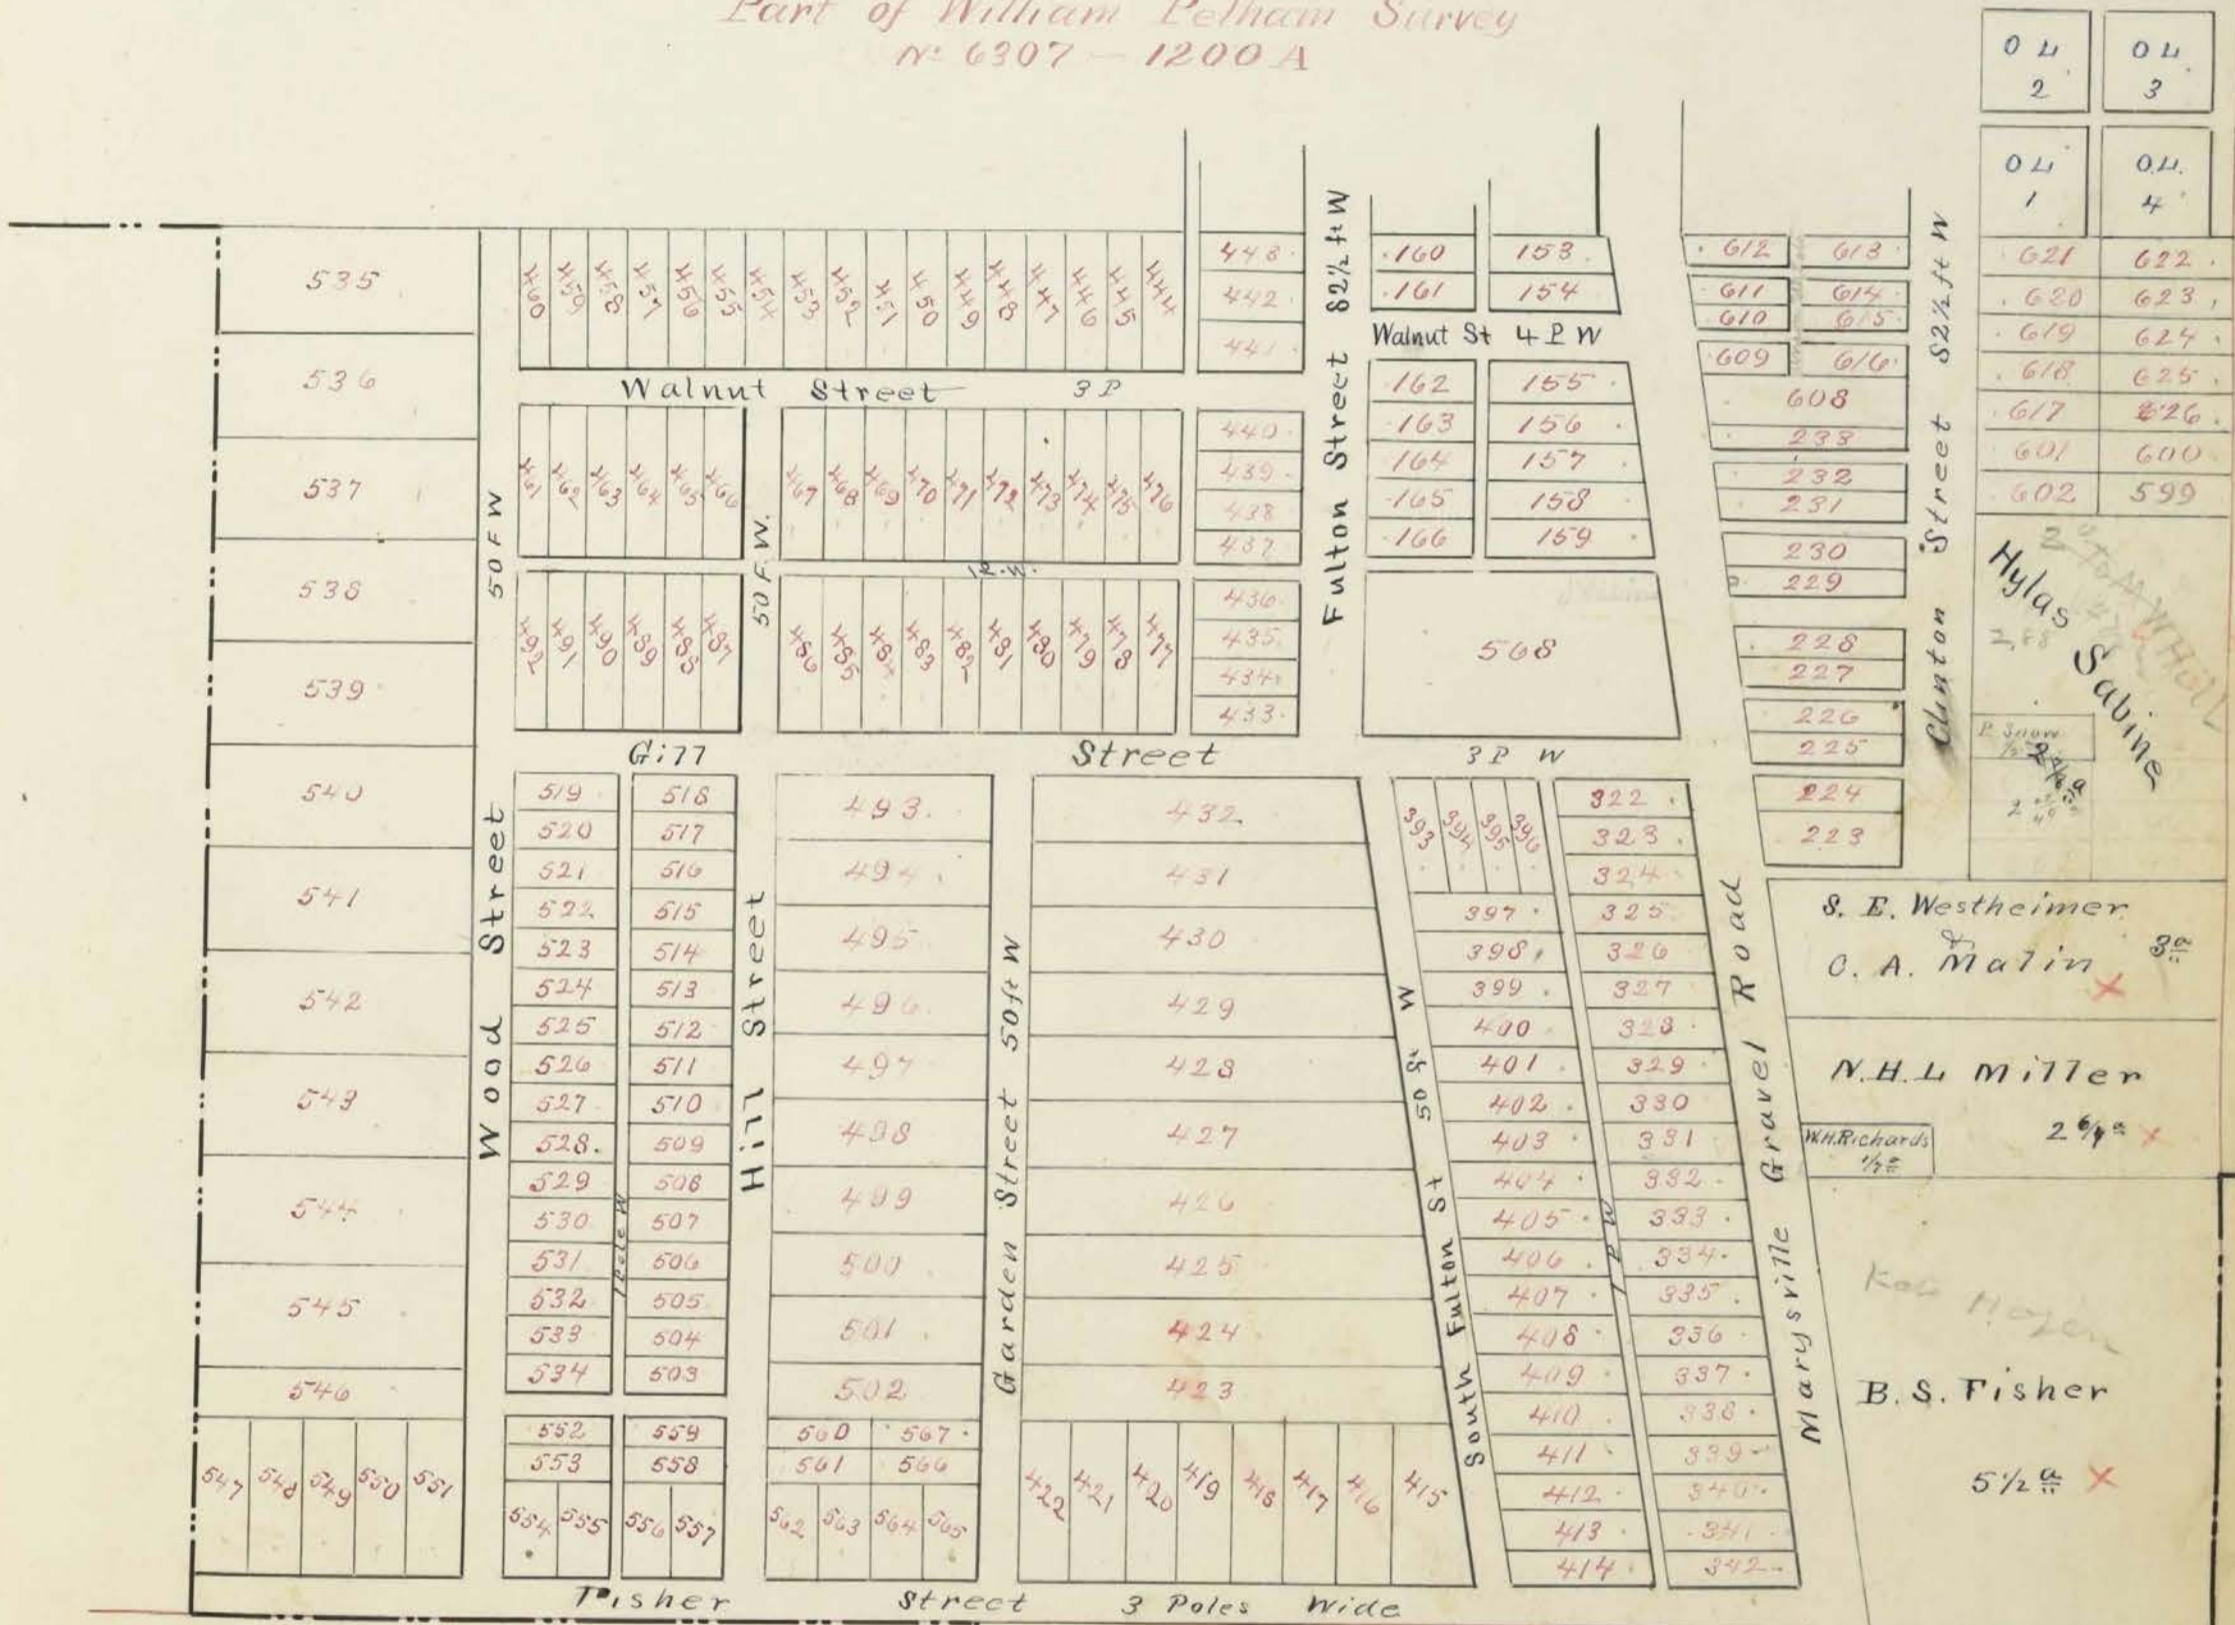 Part of William Pelham Survey
No 6307 — 1200 A
O L 2
O L. 3
O L 1
O.L. 4
535
536
537
538
539
540
541
542
543
544
545
546
547 548 549 550 551
50 F W
Wood Street
460 459 458 457 456 455 454 453 452 451 450 449 448 447 446 445 444
443
442
441
Walnut Street 3 P
461 462 463 464 465 466
50 F. W.
467 468 469 470 471 472 473 474 475 476
440
439
438
437
492 491 490 489 488 487
486 485 484 483 482 481 480 479 478 477
436
435
434
433
Fulton Street 82½ ft W
160 153
161 154
Walnut St 4 P W
162 155
163 156
164 157
165 158
166 159
568
612 613
611 614
610 615
609 616
608
238
232
231
230
229
228
227
226
225
224
223
Clinton Street 82½ ft W
621 622
620 623
619 624
618 625
617 626
601 600
602 599
Hylas Sabine
2.88
P. Snow
Gill Street 3 P W
519 518
520 517
521 516
522 515
523 514
524 513
525 512
526 511
527 510
528. 509
529 508
530 507
531 506
532 505
533 504
534 503
1 Pole W
552 559
553 558
554 555 556 557
Hill Street
493.
494
495
496
497
498
499
500
501
502
560 567
561 566
562 563 564 565
Garden Street 50 ft W
432
431
430
429
428
427
426
425
424
423
422 421 420 419 418 417 416 415
South Fulton St 50 ft W
393 394 395 396
397
398
399
400
401
402
403
404
405
406
407
408
409
410
411
412
413
414
1 P W
322
323
324
325
326
327
328
329
330
331
332
333
334
335
336
337
338
339
340
341
342
Marysville Gravel Road
S. E. Westheimer
&
C. A. Malin 3 a
X
N. H. L Miller
2 6/7 a X
W.H.Richards
1/7 a
B. S. Fisher
5 1/2 a X
Fisher Street 3 Poles Wide